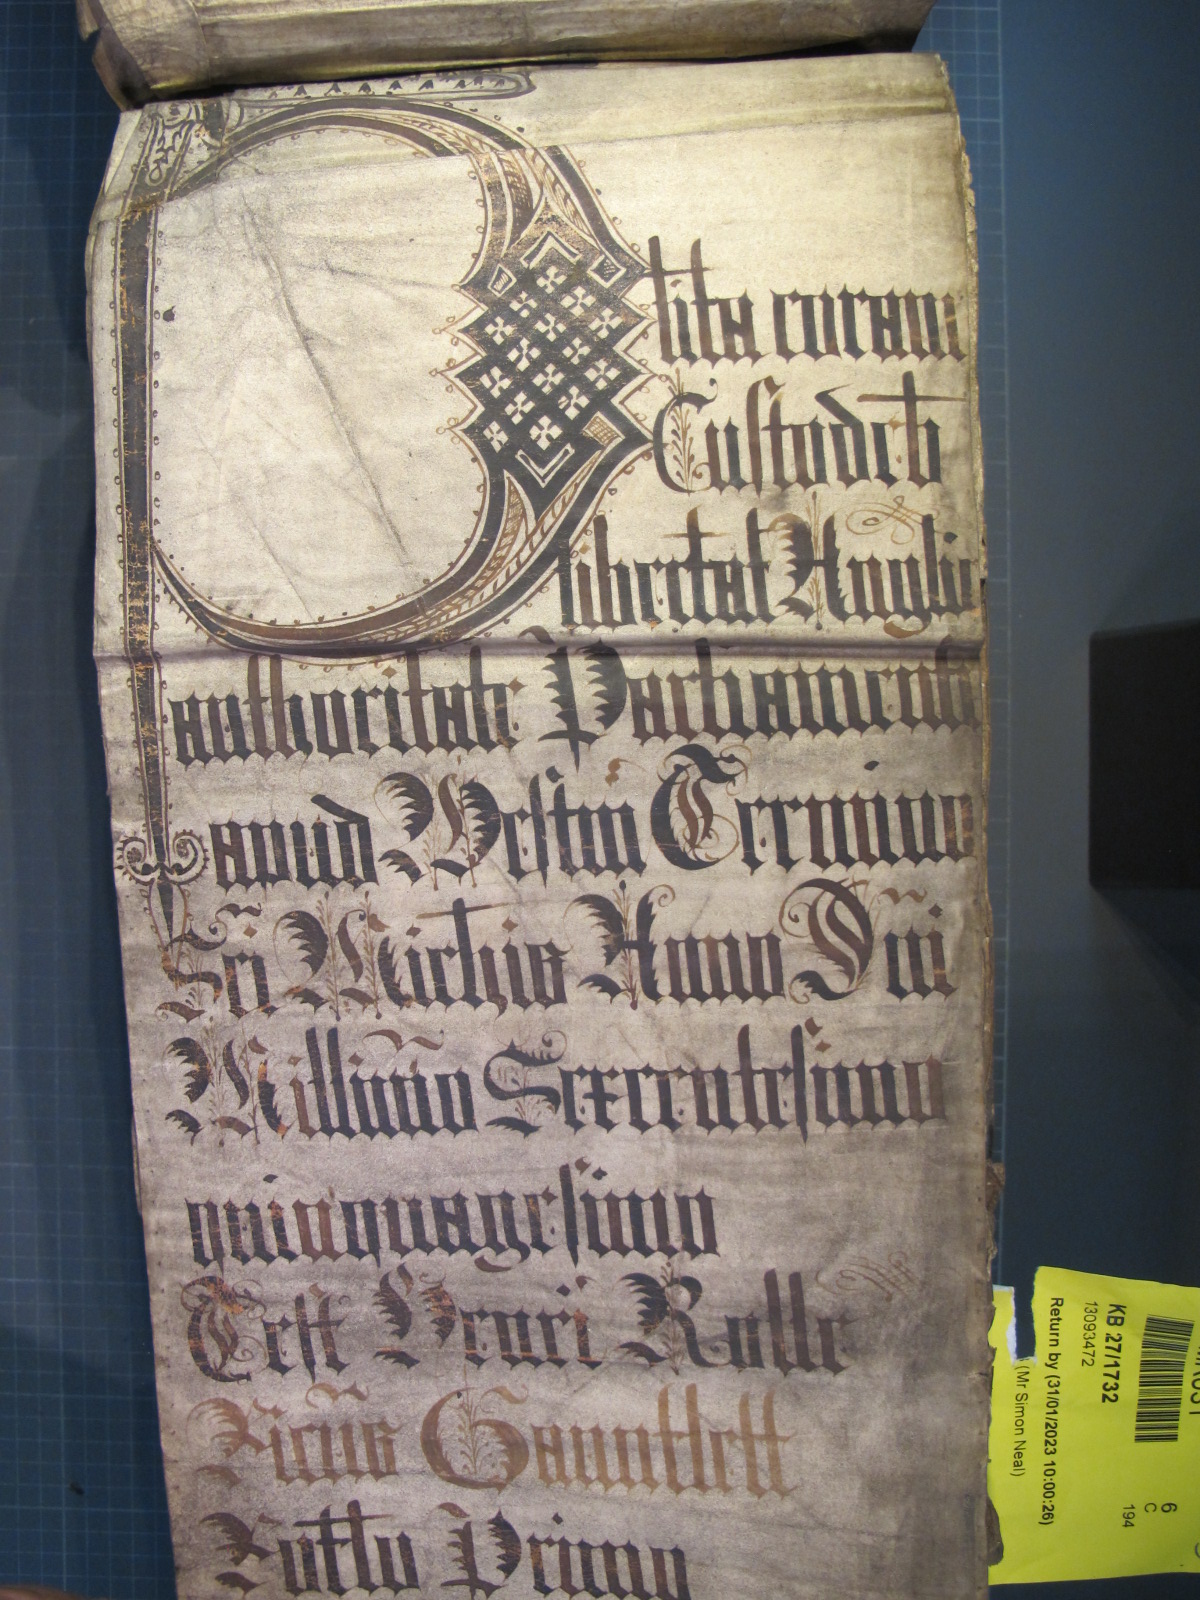 Plita coram
Custodib
libertat Anglie
authoritate Parliamenti
apud Westm Termino
Sci Michis Anno Dni
Millimo Sexcentesimo
quinquagesimo
Teste Henri Rolle
Ricus Gauntlett
Rotlo Primo
KB 27/1732
13093472
Return by (31/01/2023 10:00:26)
(Mr Simon Neal)
6
C
194